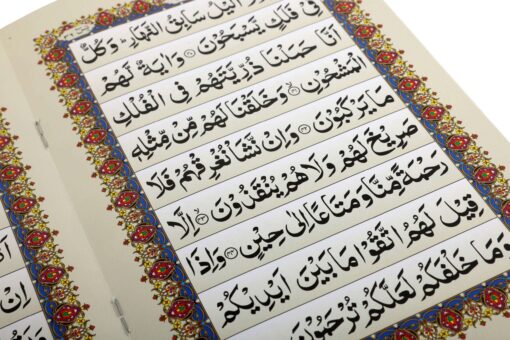 الَّيْلُ سَابِقُ النَّهَارِ وَكُلٌّ
فِي فَلَكٍ يَسْبَحُونَ ۝ وَاٰيَةٌ لَّهُمْ
اَنَّا حَمَلْنَا ذُرِّيَّتَهُمْ فِي الْفُلْكِ
الْمَشْحُونِ ۝ وَخَلَقْنَا لَهُمْ مِّنْ مِّثْلِهٖ
مَا يَرْكَبُونَ ۝ وَاِنْ نَّشَأْ نُغْرِقْهُمْ فَلَا
صَرِيْخَ لَهُمْ وَلَا هُمْ يُنْقَذُوْنَ ۝ اِلَّا
رَحْمَةً مِّنَّا وَمَتَاعًا اِلٰى حِيْنٍ ۝ وَاِذَا
قِيْلَ لَهُمُ اتَّقُوْا مَا بَيْنَ اَيْدِيْكُمْ
وَمَا خَلْفَكُمْ لَعَلَّكُمْ تُرْحَمُوْنَ